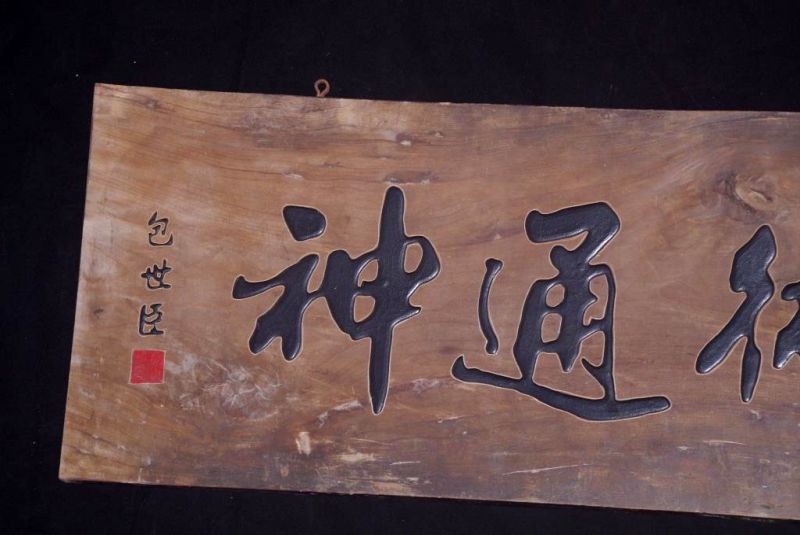 通神
包世臣